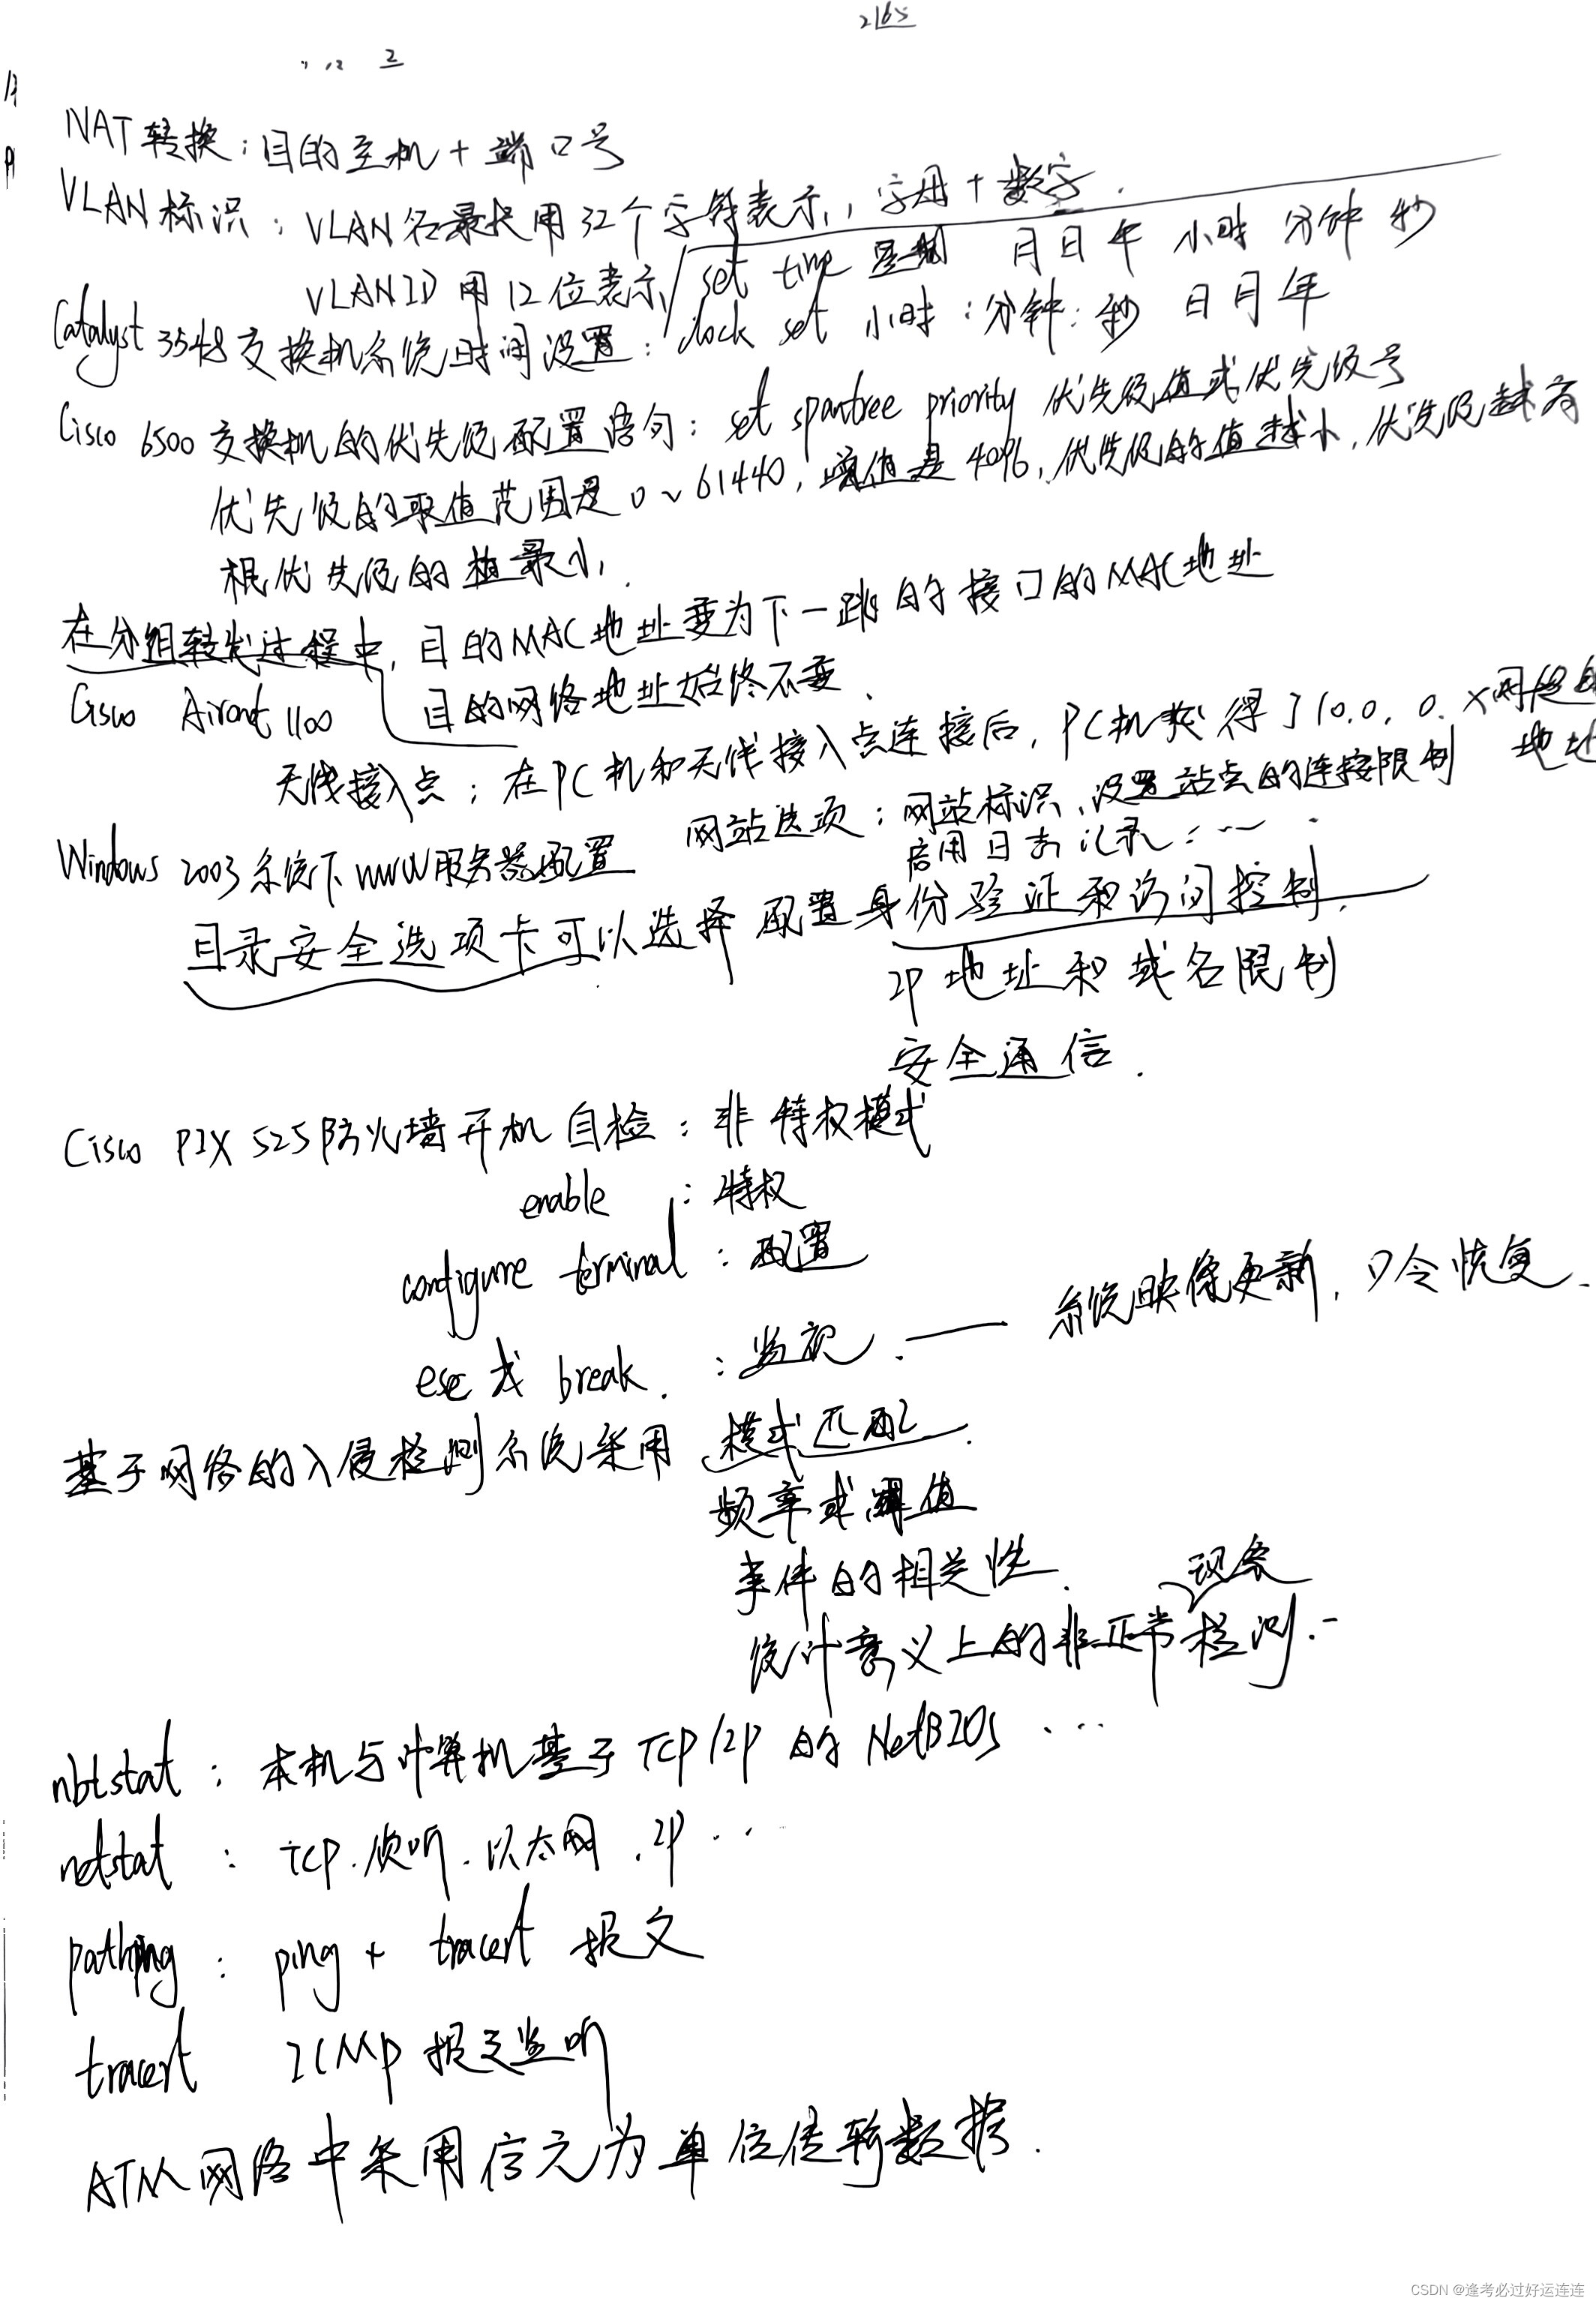 2165
2
NAT转换：目的主机 + 端口号
VLAN标识：VLAN名最长用32个字符表示，字母 + 数字.
VLAN ID 用12位表示
set time 星期 月日年 小时 分钟 秒
Catalyst 3548交换机系统时间设置：clock set 小时：分钟：秒 日月年
Cisco 6500交换机的优先级配置语句：set spantree priority 优先级值或优先级号
优先级的取值范围是0~61440，增值是4096，优先级的值越小，优先级越高
根优先级的值最小.
在分组转发过程中，目的MAC地址变为下一跳的接口的MAC地址
目的网络地址始终不变.
Cisco Aironet 1100
无线接入点：在PC机和无线接入点连接后，PC机获得了10.0.0.x网段的
地址
Windows 2003系统下WWW服务器配置 网站选项：网站标识，设置站点的连接限制
启用日志记录：…
目录安全选项卡可以选择 配置身份验证和访问控制.
IP地址和域名限制
安全通信.
Cisco PIX 525防火墙开机自检：非特权模式
enable ：特权
configure terminal ：配置
esc或break. ：监视. —— 系统映像更新，口令恢复.
基于网络的入侵检测系统采用 模式匹配.
频率或阈值
事件的相关性.
现象
统计意义上的非正常检测.
nbtstat：本机与计算机基于TCP/IP的NetBIOS ...
netstat：TCP.侦听.以太网.IP ...
pathping：ping + tracert 报文
tracert ICMP报文监听
ATM网络中采用信元为单位传输数据.
CSDN @逢考必过好运连连